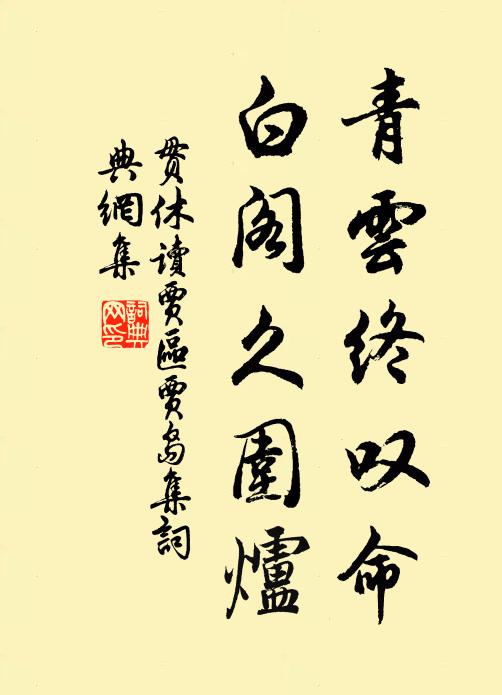 青雲終叹命
白阁久圍爐
貫休讀賈區賈島集詞
典網集
詞典
网印